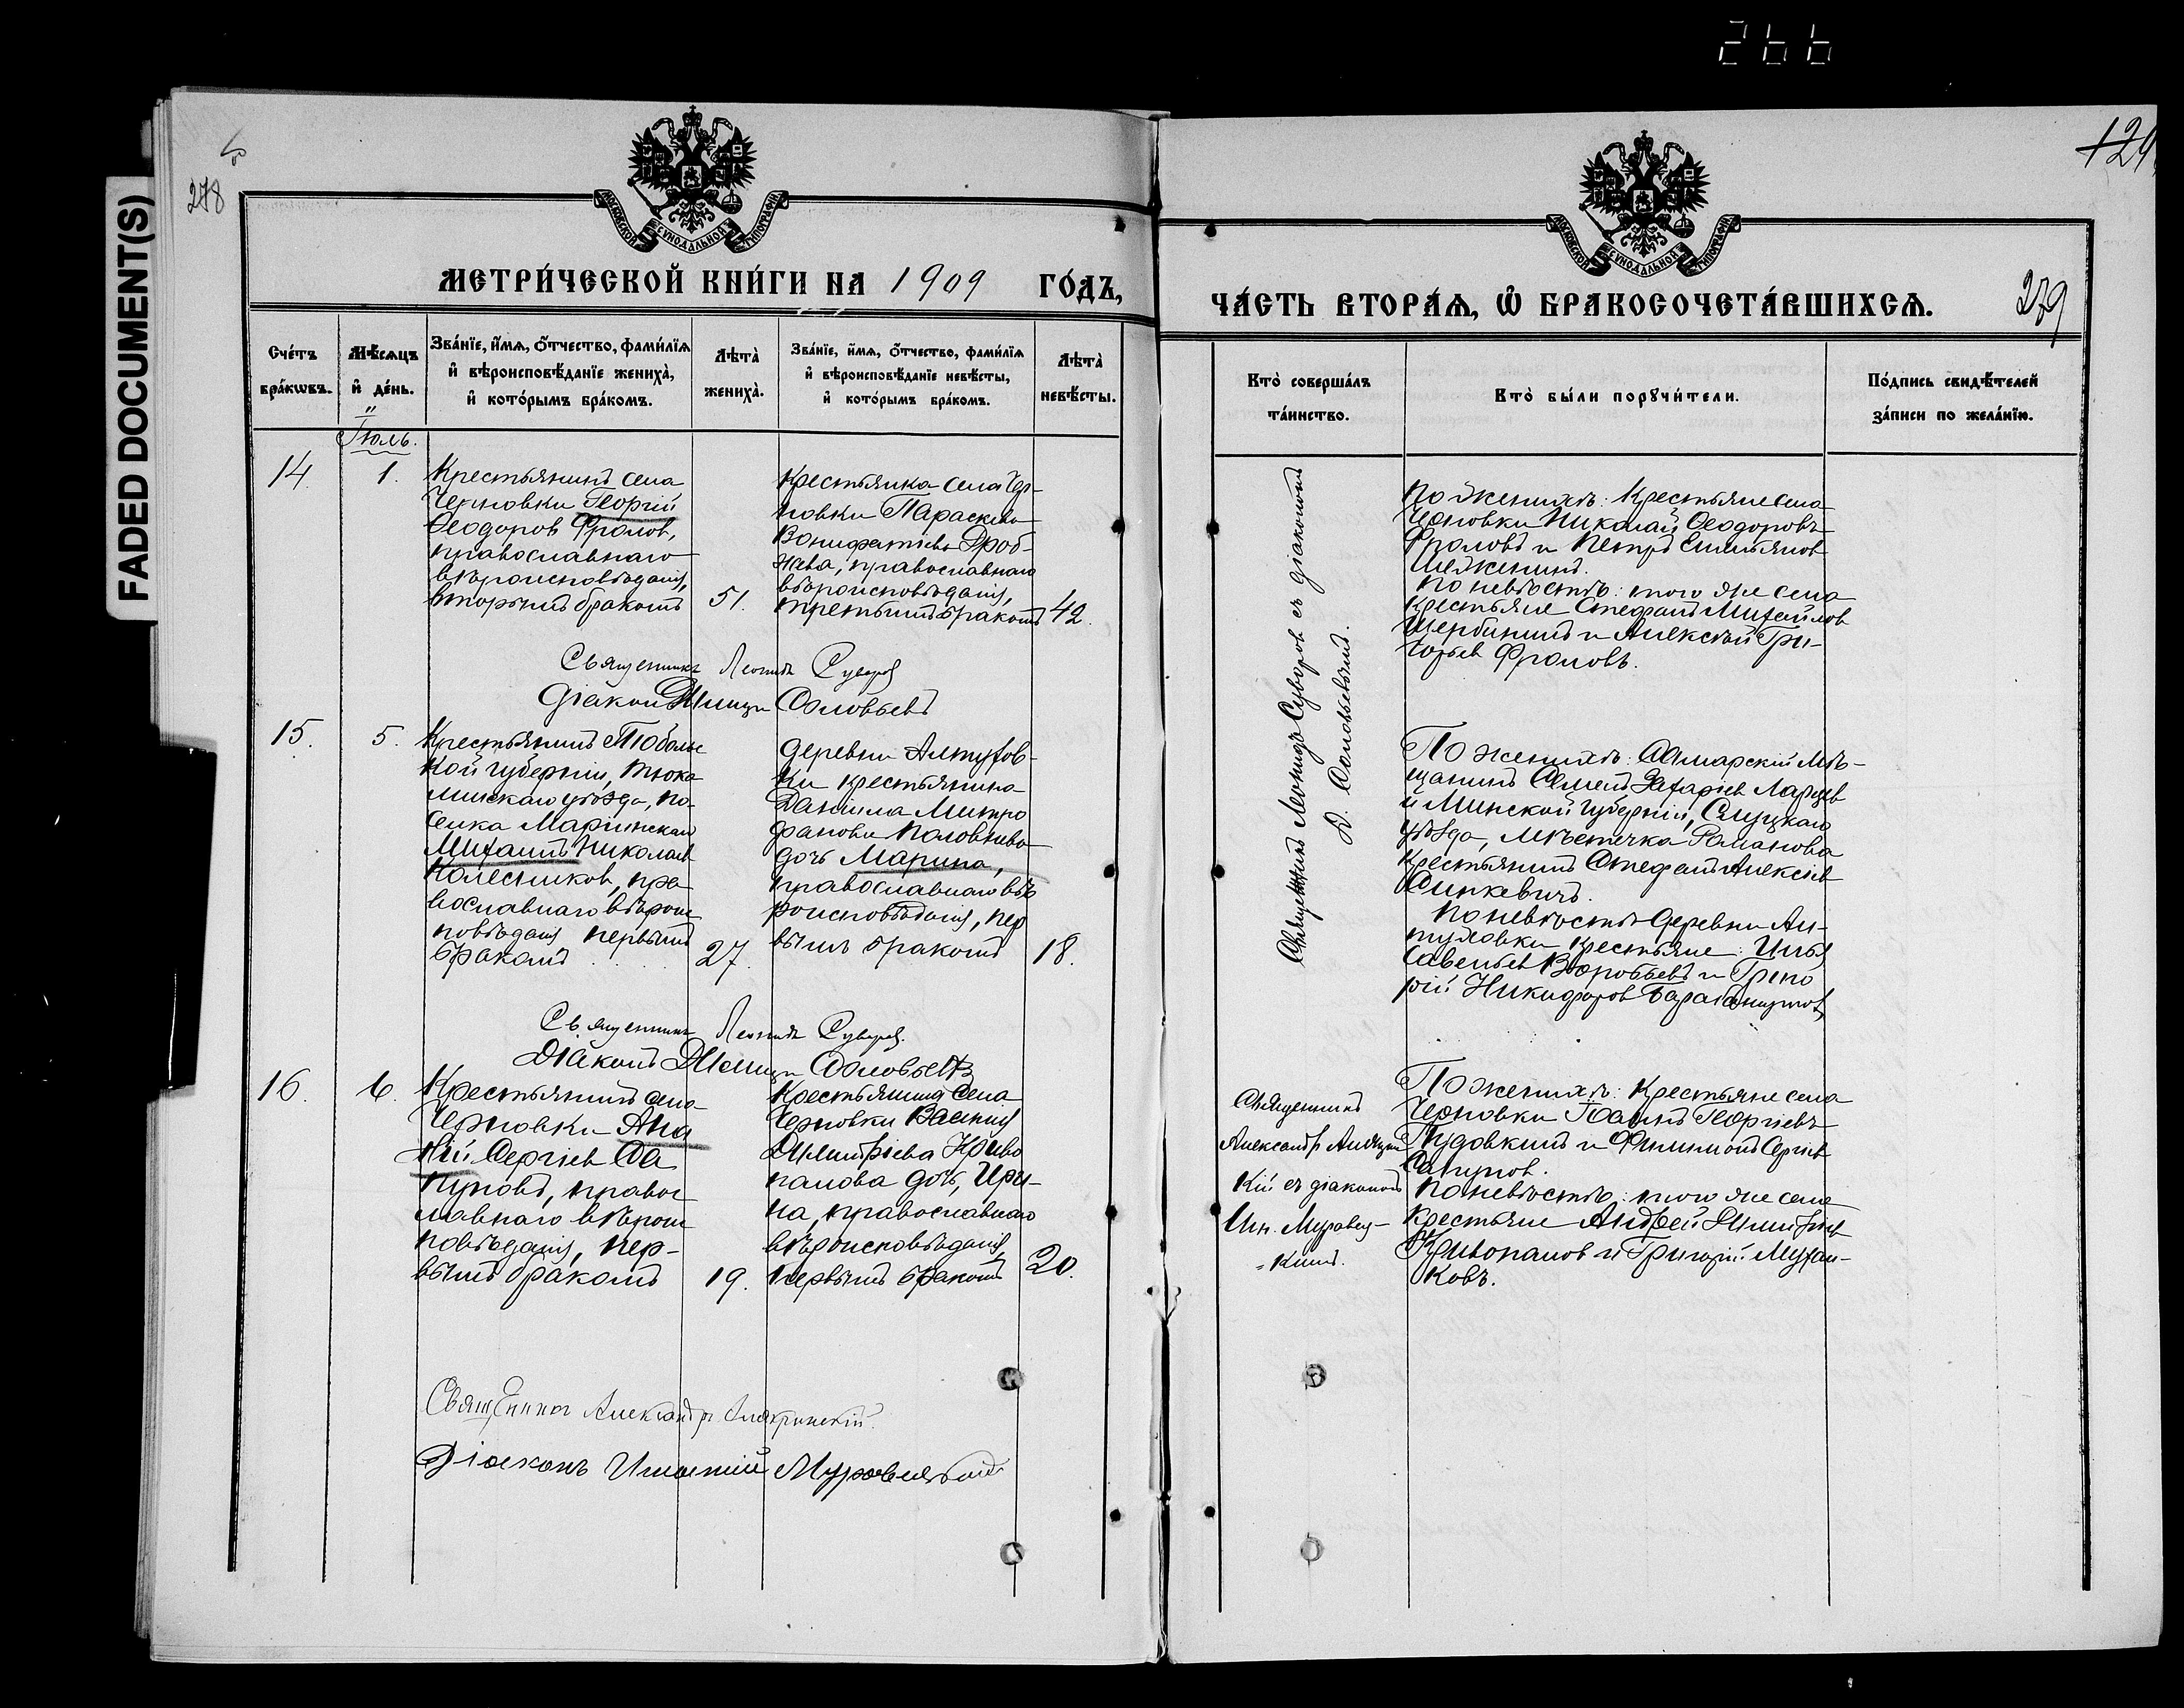 266
FADED DOCUMENT(S)
278
МОСКОВСКОЙ СѴНОДАЛЬНОЙ ТИПОГРАФІИ
МЕТРИ́ЧЕСКОЙ КНИ́ГИ НА 1909 ГО́ДЪ,
Сче́тъ бра́кѡвъ.
Мѣ́сѧцъ и҆ де́нь.
Зва́нїе, и҆́мѧ, ѻ҆́тчество, фами́лїѧ
и҆ вѣроисповѣ́данїе жениха̀,
и҆ кото́рымъ бра́комъ.
Лѣта̀ жениха̀.
Зва́нїе, и҆́мѧ, ѻ҆́тчество, фами́лїѧ
и҆ вѣроисповѣ́данїе невѣ́сты,
и҆ кото́рымъ бра́комъ.
Лѣта̀ невѣ́сты.
Іюль.
14.
1.
Крестьянинъ села
Черновки Георгій
Ѳеодоров Фролов,
православнаго
вѣроисповѣданія,
вторымъ бракомъ
51.
Крестьянка села Чер-
новки Параскева
Вонифатіева Дроб-
православнаго
вѣроисповѣданія,
третьимъ бракомъ
42.
Священникъ Леонидъ Суворовъ
Діаконъ Соловьевъ
15.
5.
Крестьянинъ Тоболь
кой губерніи, Тюка
линскаго уѣзда, по-
селка Маріинскаго
Михаилъ Николаев
Колесников, пра-
вославнаго вѣроис
повѣданія первымъ
бракомъ
27.
деревни Алтухов-
ки крестьянина
Даніила Митро
фанова
дочь Марина,
православнаго вѣ
роисповѣданія, пер
вымъ бракомъ
18.
Священникъ Леонидъ Суворовъ.
Діаконъ Соловьевъ
16.
6.
Крестьянинъ села
Черновки Ана
ній Сергіев Са
пуновъ, правос
лавнаго вѣроис
повѣданія, пер-
вымъ бракомъ
19.
Крестьянина села
Черновки Василія
Димитріева Криво
палова дочь, Ири-
на, православнаго
вѣроисповѣданія,
первымъ бракомъ
20.
Священникъ Александръ
Діаконъ
129
МОСКОВСКОЙ СѴНОДАЛЬНОЙ ТИПОГРАФІИ
ЧА́СТЬ ВТОРА́Ѧ, Ѡ҆ БРАКОСОЧЕТА́ВШИХСѦ.
279
Кто̀ соверша́лъ
та́инство.
Кто̀ бы́ли порꙋчи́тели.
По́дпись свидѣ́телей
за́писи по жела́нїю.
Священникъ Леонидъ Суворов съ діакономъ
Д. Соловьевымъ.
По женихѣ: Крестьяне села
Черновки Николай Ѳеодоровъ
Фроловъ и Петръ Емельянов
По невѣстѣ: того же села
крестьяне Стефанъ Михайлов
Щербининъ и Алексѣй Гри-
горьев Фроловъ.
По женихѣ: Самарскій мѣ-
щанинъ Семенъ Захаріев Ларцев
и Минской губерніи, Слуцкаго
уѣзда, мѣстечка Романова
крестьянинъ Стефанъ Алексіев
Синкевичъ.
По невѣстѣ деревни Ал-
туховки крестьяне: Илья
Савельев Воробьевъ и Григо
рій Никифоров
Священникъ
Александръ
кій съ діакономъ
Ин.
По женихѣ: Крестьяне села
Черновки Іоаннъ Георгіевъ
и Филимонъ Сергіев
Сапунов.
По невѣстѣ: того же села
крестьяне Андрей Димитріев
Кривопалов и Григорій
ковъ.